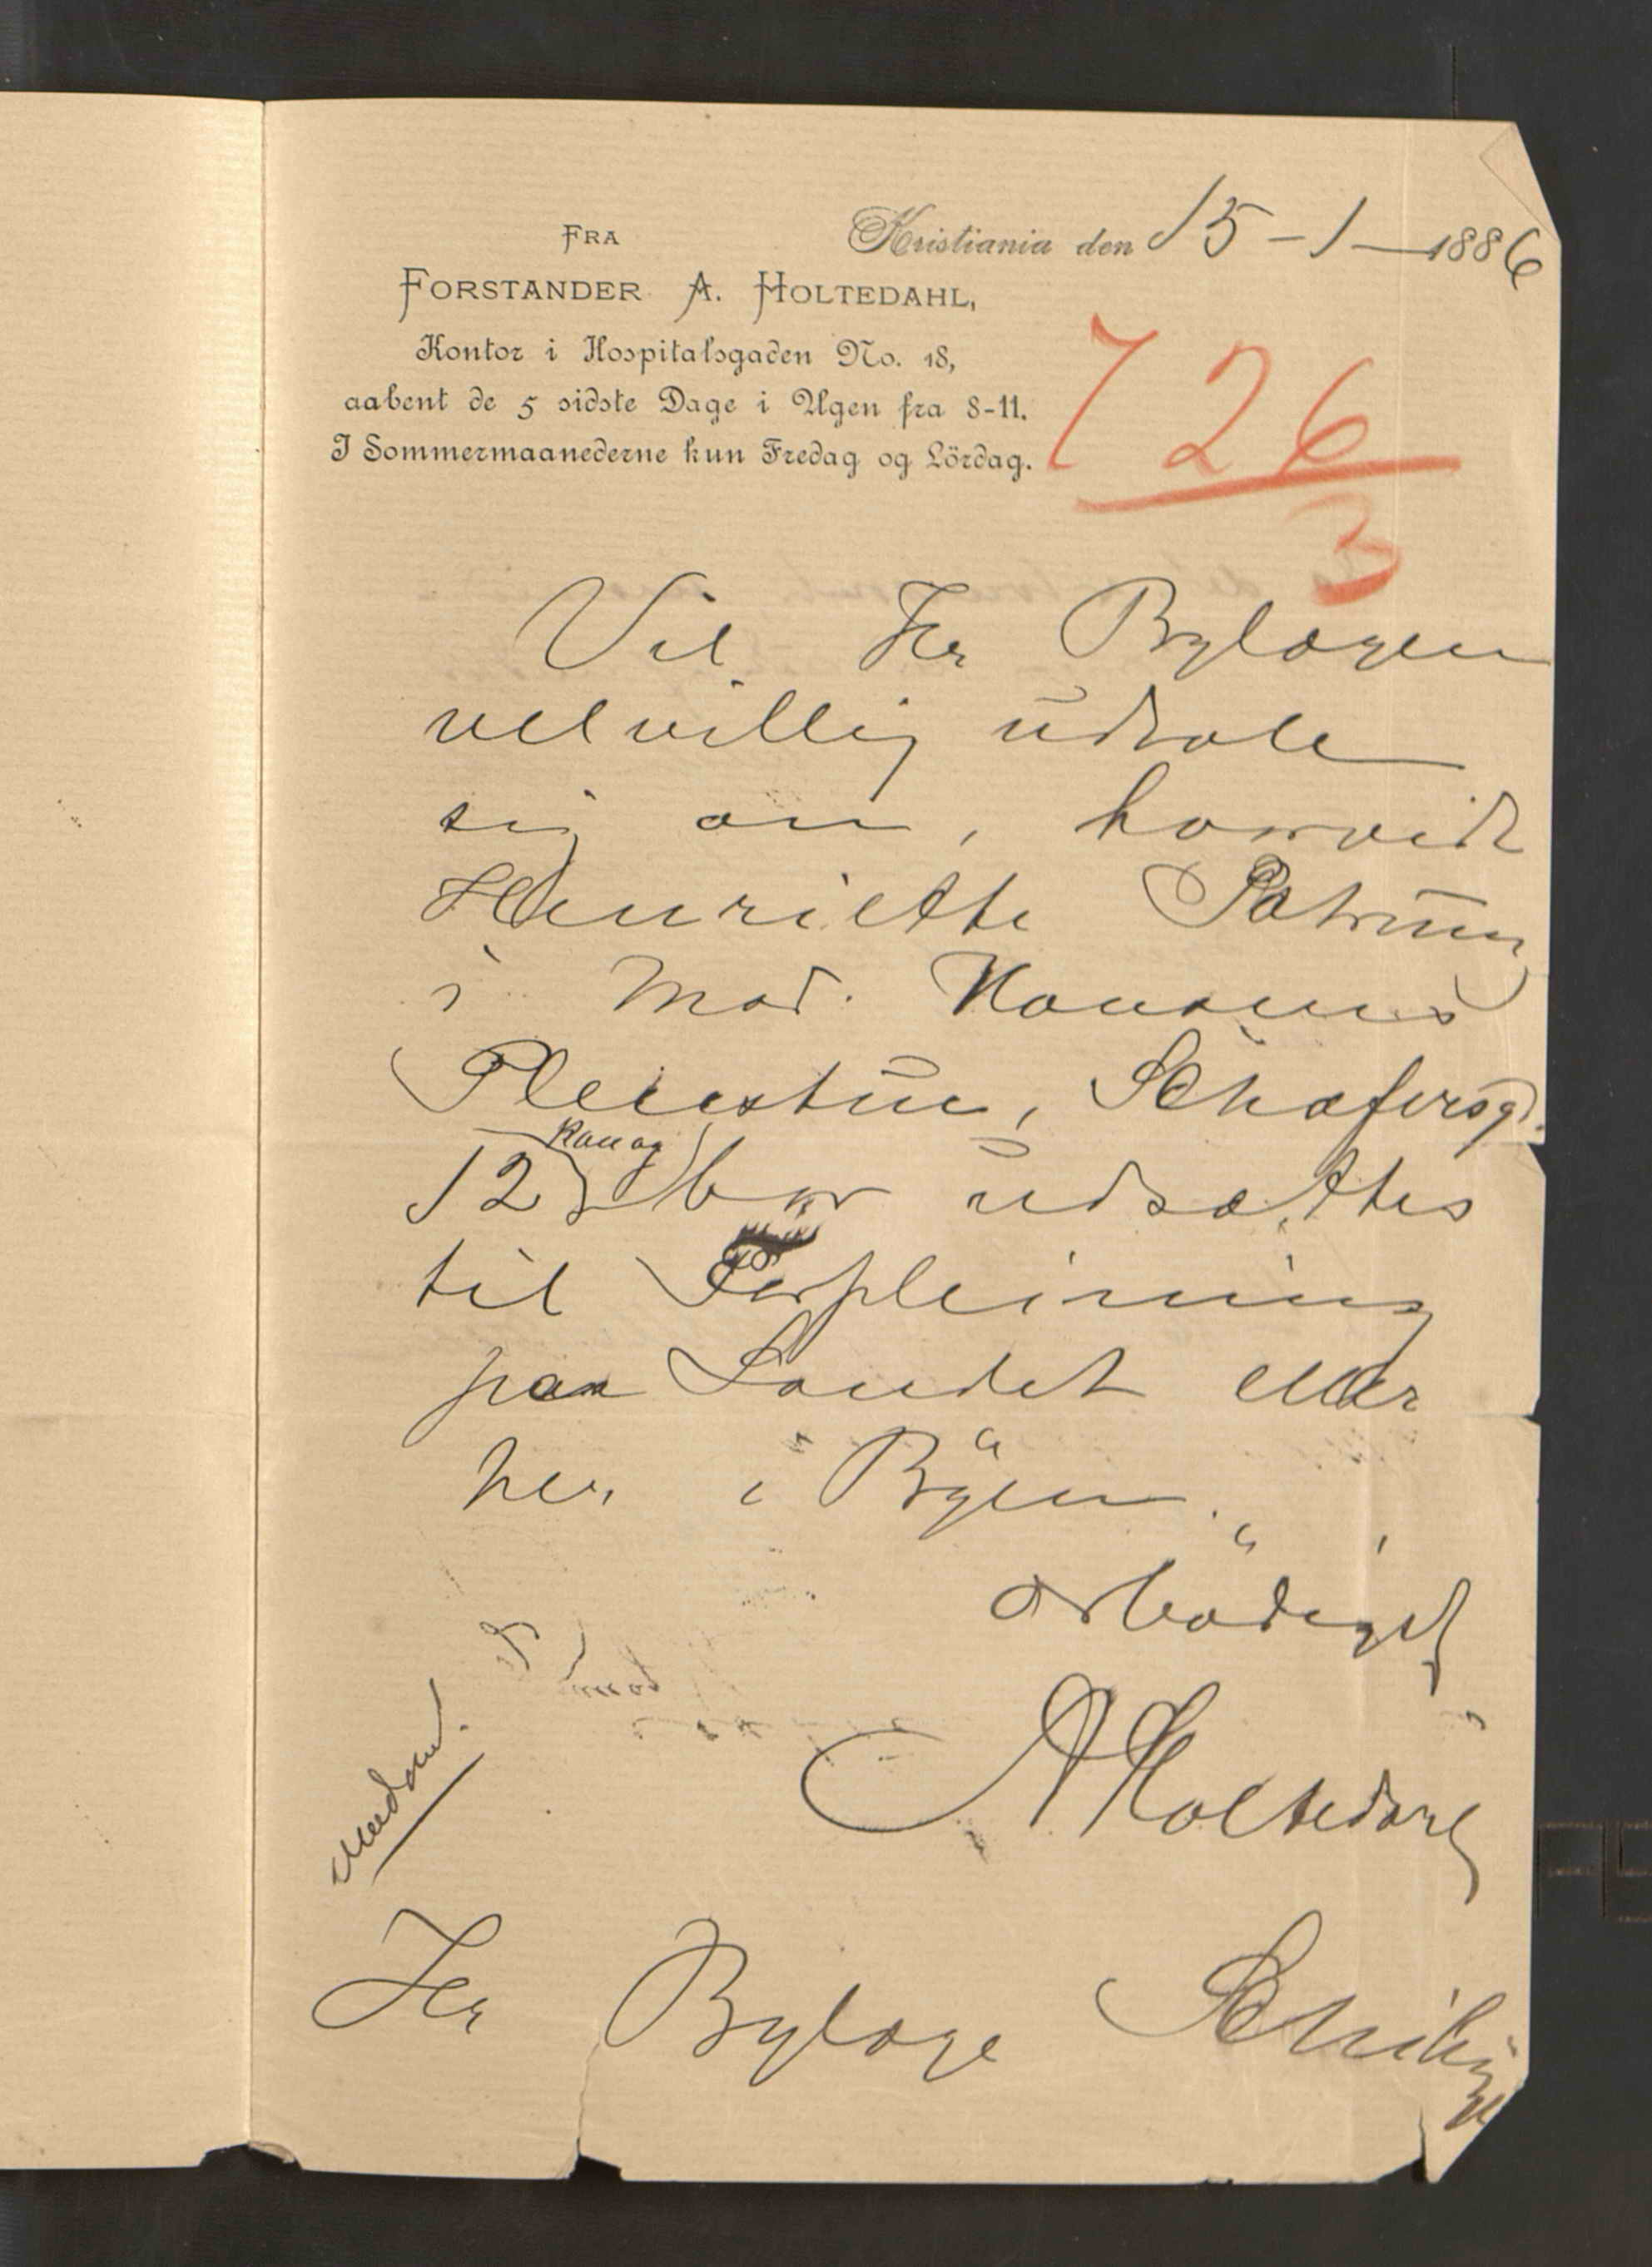 FRA
Kristiania den 15-1-1886
FORSTANDER A. HOLTEDAHL,
Kontor i Hospitalsgaden No. 18,
aabent de 5 sidste Dage i Ugen fra 8-11.
I Sommermaanederne kun Fredag og Lördag.
726
3
Vil Hr Bylægen
velvillig udtale
sig om, hvorvidt
Henriette
i Mad. Hansens
Pleiestue, Schafersgd.
12, kan og bør udsættes
til Forpleining
paa Landet eller
her i Byen.
Ærbødigst
A Holtedahl
Hr Bylæge